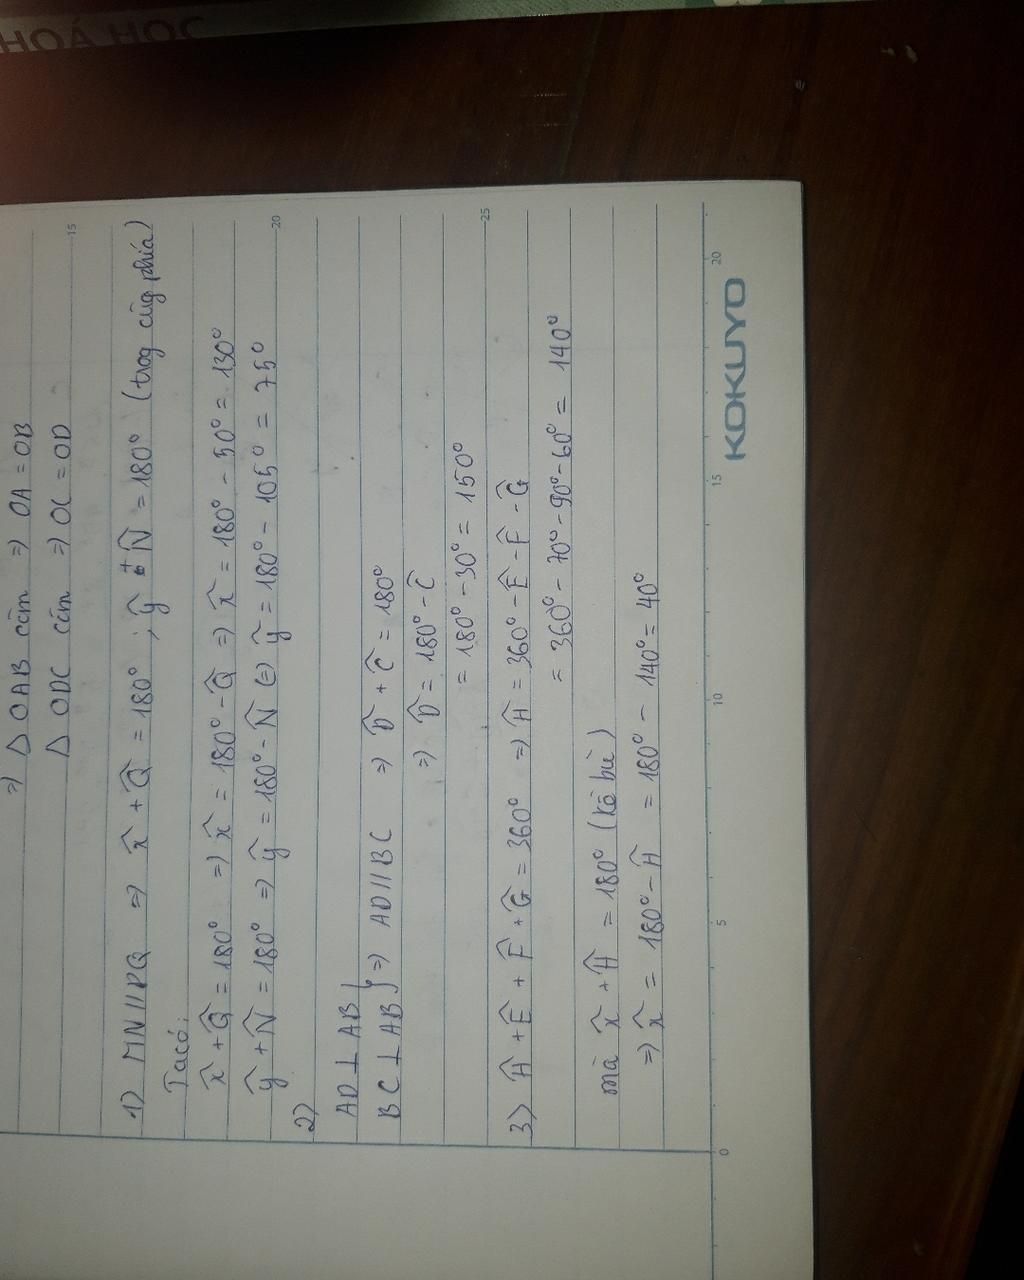 HOÁ HỌC
=) Δ OAB cân =) OA = OB
Δ ODC cân =) OC = OD
15
1) MN // PQ =) x̂ + Q̂ = 180° ; ŷ + N̂ = 180° (trog cùg phía)
Ta có:
x̂ + Q̂ = 180° =) x̂ = 180° - Q̂ =) x̂ = 180° - 50° = 130°
ŷ + N̂ = 180° =) ŷ = 180° - N̂ (=) ŷ = 180° - 105° = 75°
20
2)
AD ⊥ AB
BC ⊥ AB } =) AD // BC =) D̂ + Ĉ = 180°
=) D̂ = 180° - Ĉ
= 180° - 30° = 150°
25
3) Ĥ + Ê + F̂ + Ĝ = 360° =) Ĥ = 360° - Ê - F̂ - Ĝ
= 360° - 70° - 90° - 60° = 140°
mà x̂ + Ĥ = 180° (kề bù)
=) x̂ = 180° - Ĥ = 180° - 140° = 40°
0 5 10 15 20
KOKUYO